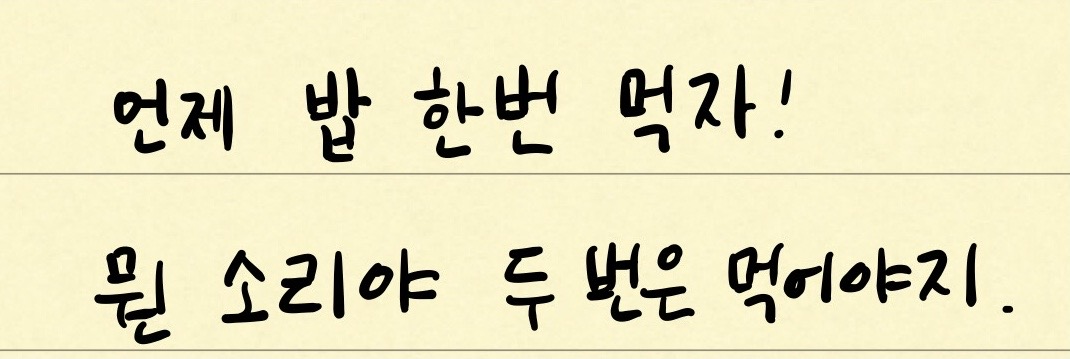 언제 밥 한번 먹자!
뭔 소리야 두 번은 먹어야지.